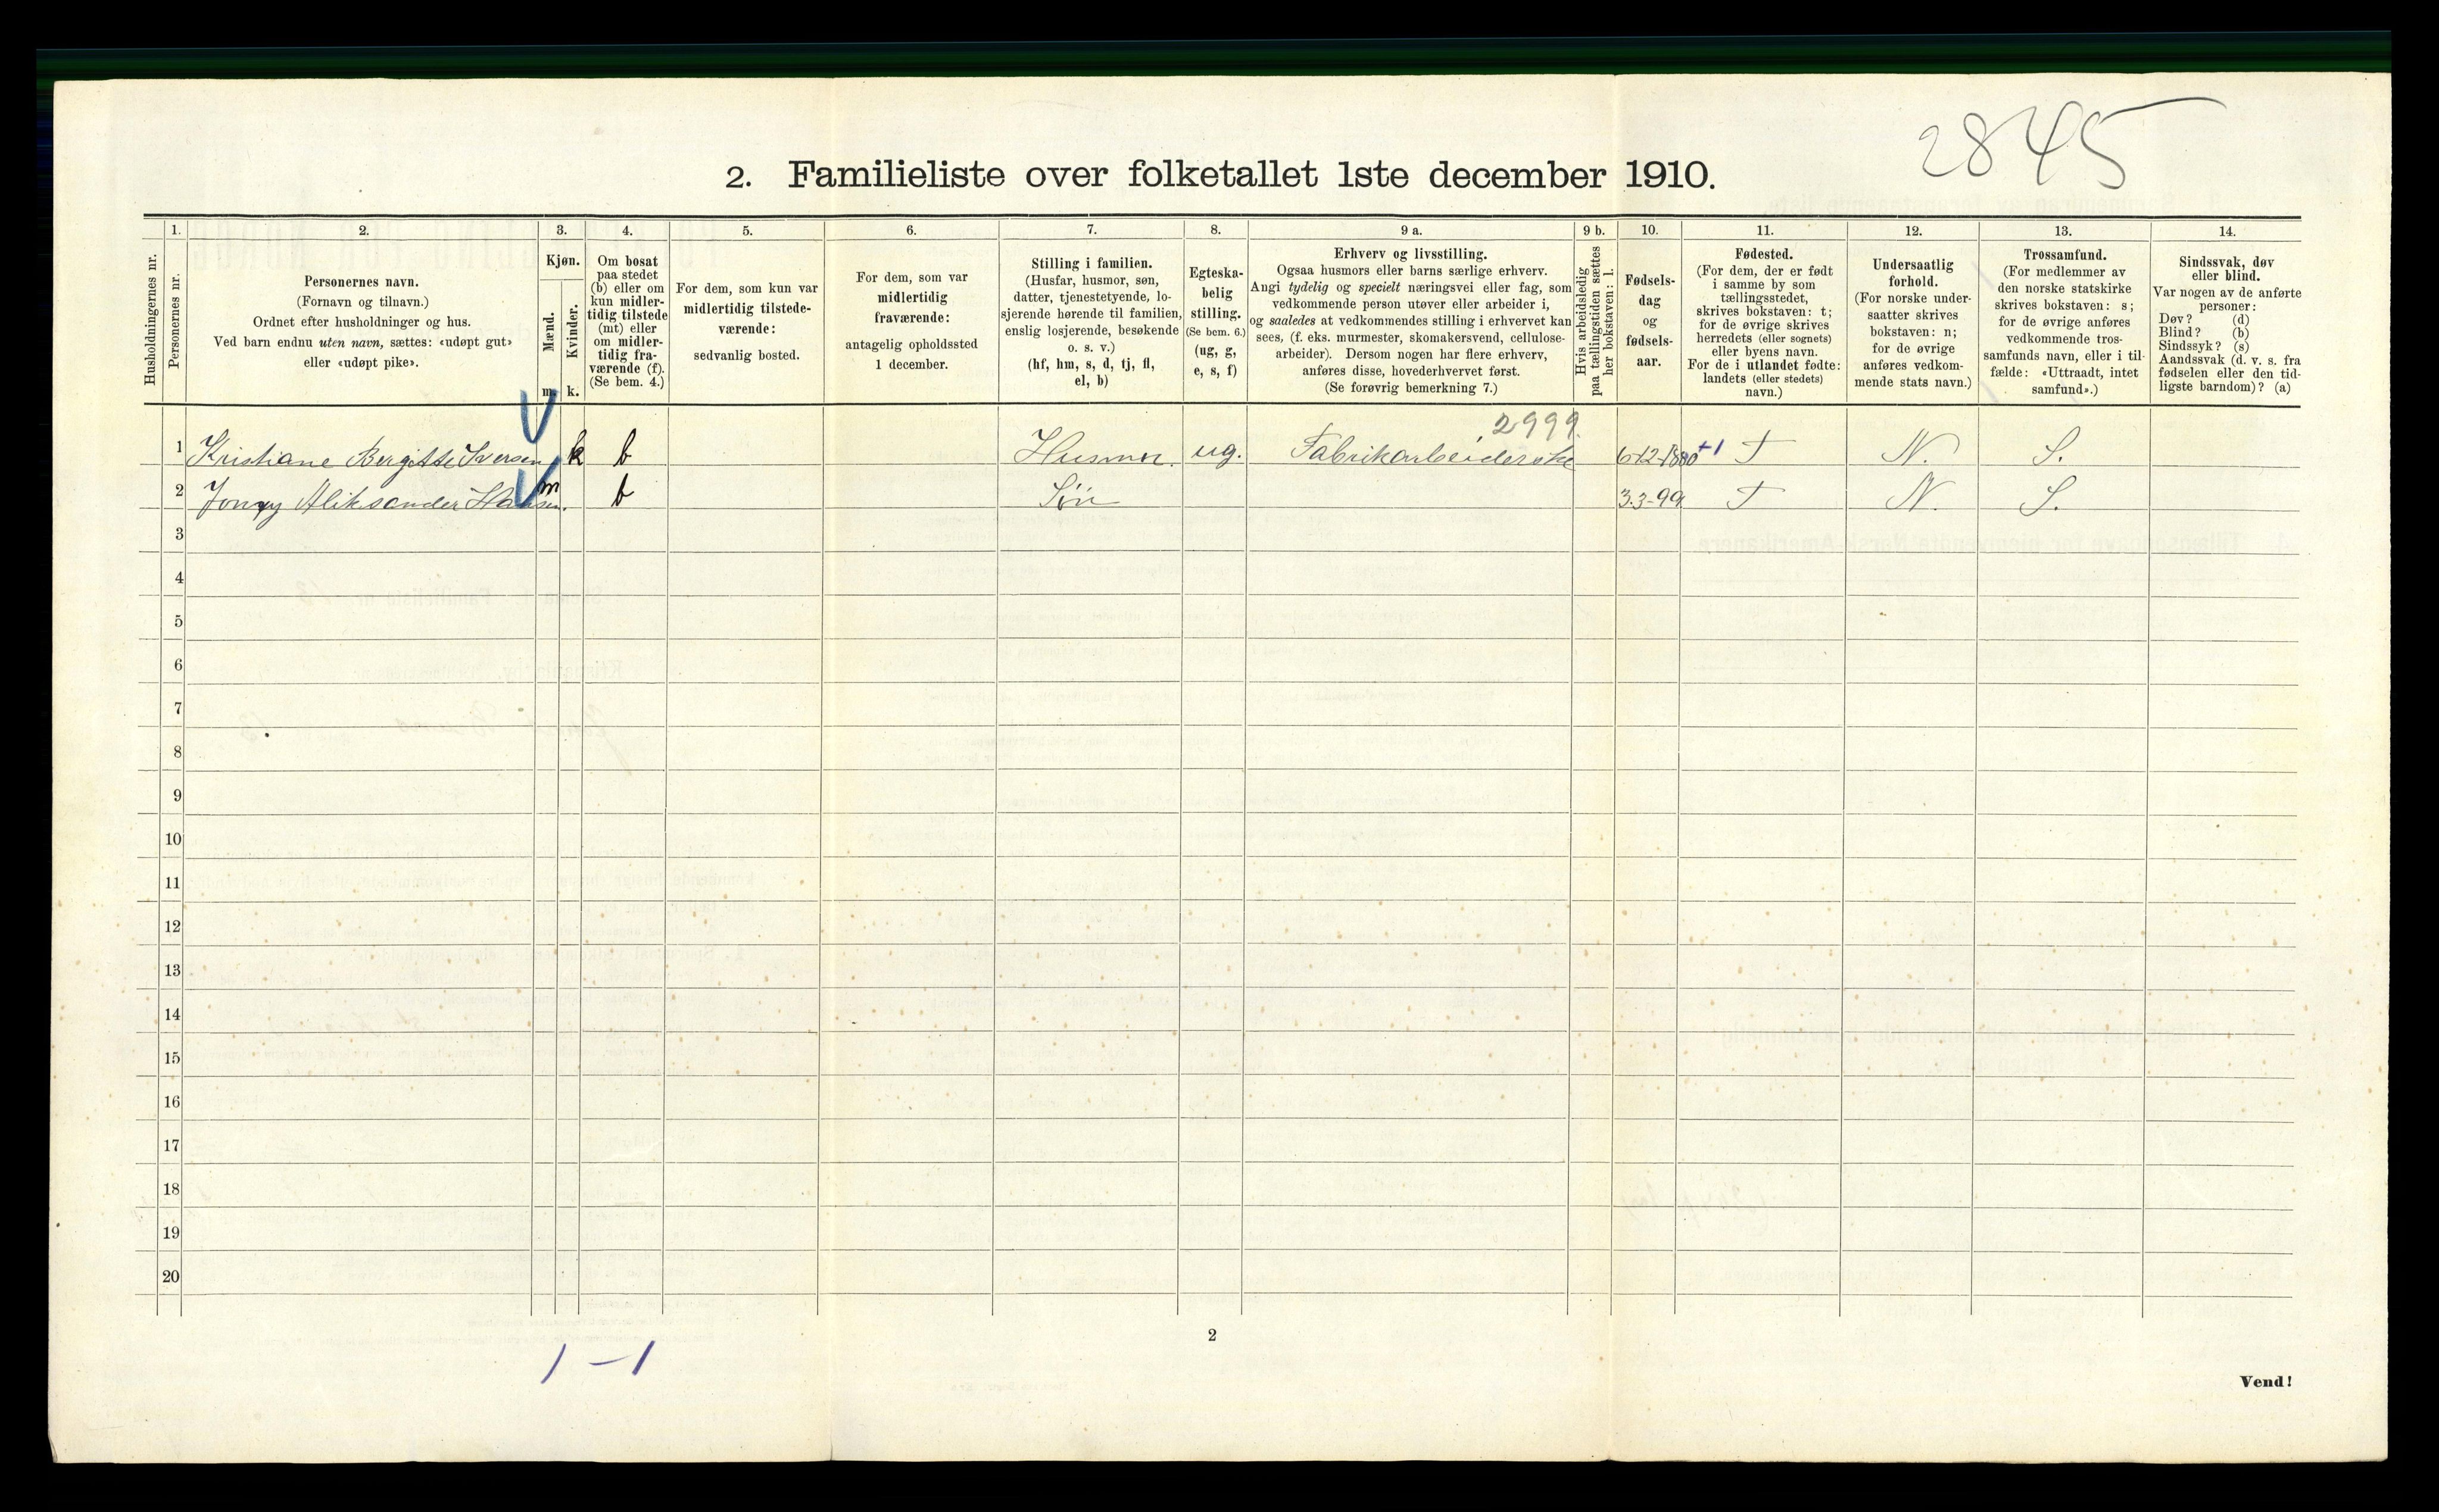 2845
2. Familieliste over folketallet 1ste december 1910.
1. 2. 3. 4. 5. 6. 7. 8. 9 a. 9 b. 10. 11. 12. 13. 14.
Husholdningernes nr.
Personernes nr.
Personernes navn.
(Fornavn og tilnavn.)
Ordnet efter husholdninger og hus.
Ved barn endnu uten navn, sættes: «udøpt gut»
eller «udøpt pike».
Kjøn.
Mænd.
m.
Kvinder.
k.
Om bosat
paa stedet
(b) eller om
kun midler-
tidig tilstede
(mt) eller
om midler-
tidig fra-
værende (f).
(Se bem. 4.)
For dem, som kun var
midlertidig tilstede-
værende:
sedvanlig bosted.
For dem, som var
midlertidig
fraværende:
antagelig opholdssted
1 december.
Stilling i familien.
(Husfar, husmor, søn,
datter, tjenestetyende, lo-
sjerende hørende til familien,
enslig losjerende, besøkende
o. s. v.)
(hf, hm, s, d, tj, fl,
el, b)
Egteska-
belig
stilling.
(Se bem. 6.)
(ug, g,
e, s, f)
Erhverv og livsstilling.
Ogsaa husmors eller barns særlige erhverv.
Angi tydelig og specielt næringsvei eller fag, som
vedkommende person utøver eller arbeider i,
og saaledes at vedkommendes stilling i erhvervet kan
sees, (f. eks. murmester, skomakersvend, cellulose-
arbeider). Dersom nogen har flere erhverv,
anføres disse, hovederhvervet først.
(Se forøvrig bemerkning 7.)
Hvis arbeidsledig
paa tællingstiden sættes
her bokstaven: l.
Fødsels-
dag
og
fødsels-
aar.
Fødested.
(For dem, der er født
i samme by som
tællingsstedet,
skrives bokstaven: t;
for de øvrige skrives
herredets (eller sognets)
eller byens navn.
For de i utlandet fødte:
landets (eller stedets)
navn.)
Undersaatlig
forhold.
(For norske under-
saatter skrives
bokstaven: n;
for de øvrige
anføres vedkom-
mende stats navn.)
Trossamfund.
(For medlemmer av
den norske statskirke
skrives bokstaven: s;
for de øvrige anføres
vedkommende tros-
samfunds navn, eller i til-
fælde: «Uttraadt, intet
samfund».)
Sindssvak, døv
eller blind.
Var nogen av de anførte
personer:
Døv? (d)
Blind? (b)
Sindssyk? (s)
Aandssvak (d. v. s. fra
fødselen eller den tid-
ligste barndom)? (a)
2999.
1 Kristiane Bergitte Iversen k b Husmor. ug. Fabrikarbeiderske 6-12-1880 +1 T N. S.
2 Jonny Aliksander Hansen. m b Søn 3.3-99 T N. S.
3
4
5
6
7
8
9
10
11
12
13
14
15
16
17
18
19
20
2
1 – 1
Vend!